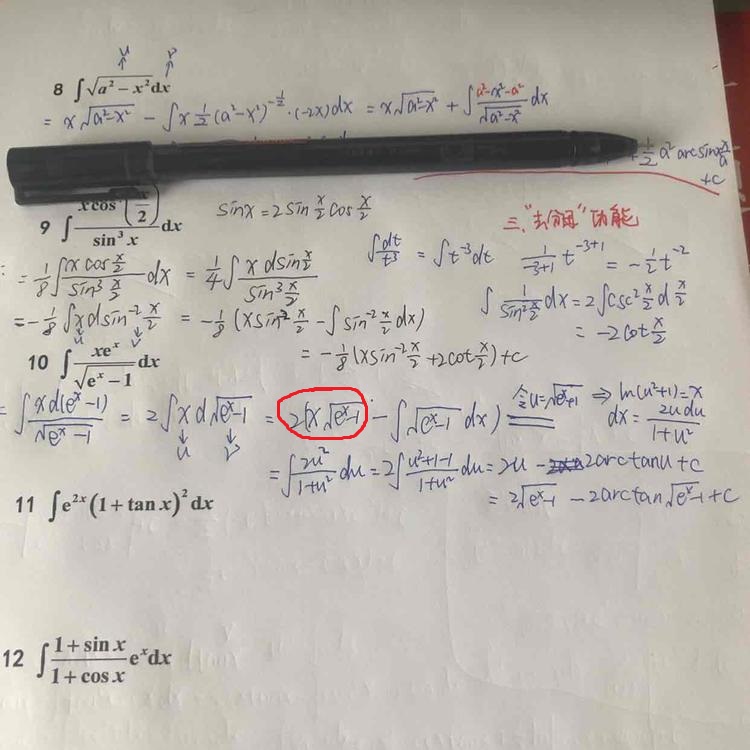 u v
↑ ↑
8 ∫√(a²-x²)dx
= x√(a²-x²) - ∫x ½(a²-x²)^(-½)·(-2x)dx = x√(a²-x²) + ∫(a²-x²-a²)/√(a²-x²) dx
+ ½a² arcsin x/a
+c
9 ∫ xcos(x/2)/sin³x dx sinx = 2sin x/2 cos x/2 三、"去分母"功能
∫dt/t³ = ∫t⁻³dt 1/(-3+1) t^(-3+1) = -½t⁻²
= ⅛∫ xcos x/2 / sin³ x/2 dx = ¼∫ x dsin x/2 / sin³ x/2
∫ 1/sin² x/2 dx = 2∫csc² x/2 d x/2
= -⅛∫x dsin⁻² x/2 = -⅛(xsin⁻² x/2 - ∫sin⁻² x/2 dx) = -2cot x/2
u v
= -⅛(xsin⁻² x/2 + 2cot x/2)+c
10 ∫ xeˣ/√(eˣ-1) dx
= ∫ xd(eˣ-1)/√(eˣ-1) = 2∫x d√(eˣ-1) = 2(x√(eˣ-1) - ∫√(eˣ-1) dx) 令u=√(eˣ-1) ⇒ ln(u²+1)=x
↓ ↓
u v
dx = 2udu/(1+u²)
= ∫ 2u²/(1+u²) du = 2∫ (u²+1-1)/(1+u²) du = 2u - 2arctanu+c
= 2√(eˣ-1) - 2arctan√(eˣ-1) + c
11 ∫e²ˣ(1+tan x)²dx
12 ∫ (1+sin x)/(1+cos x) eˣdx